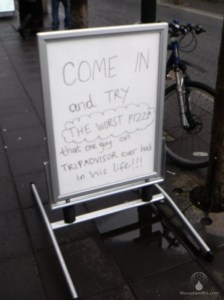 COME IN
and TRY
THE WORST PIZZA
that one guy on
TRIPADVISOR ever had
in his life!!!